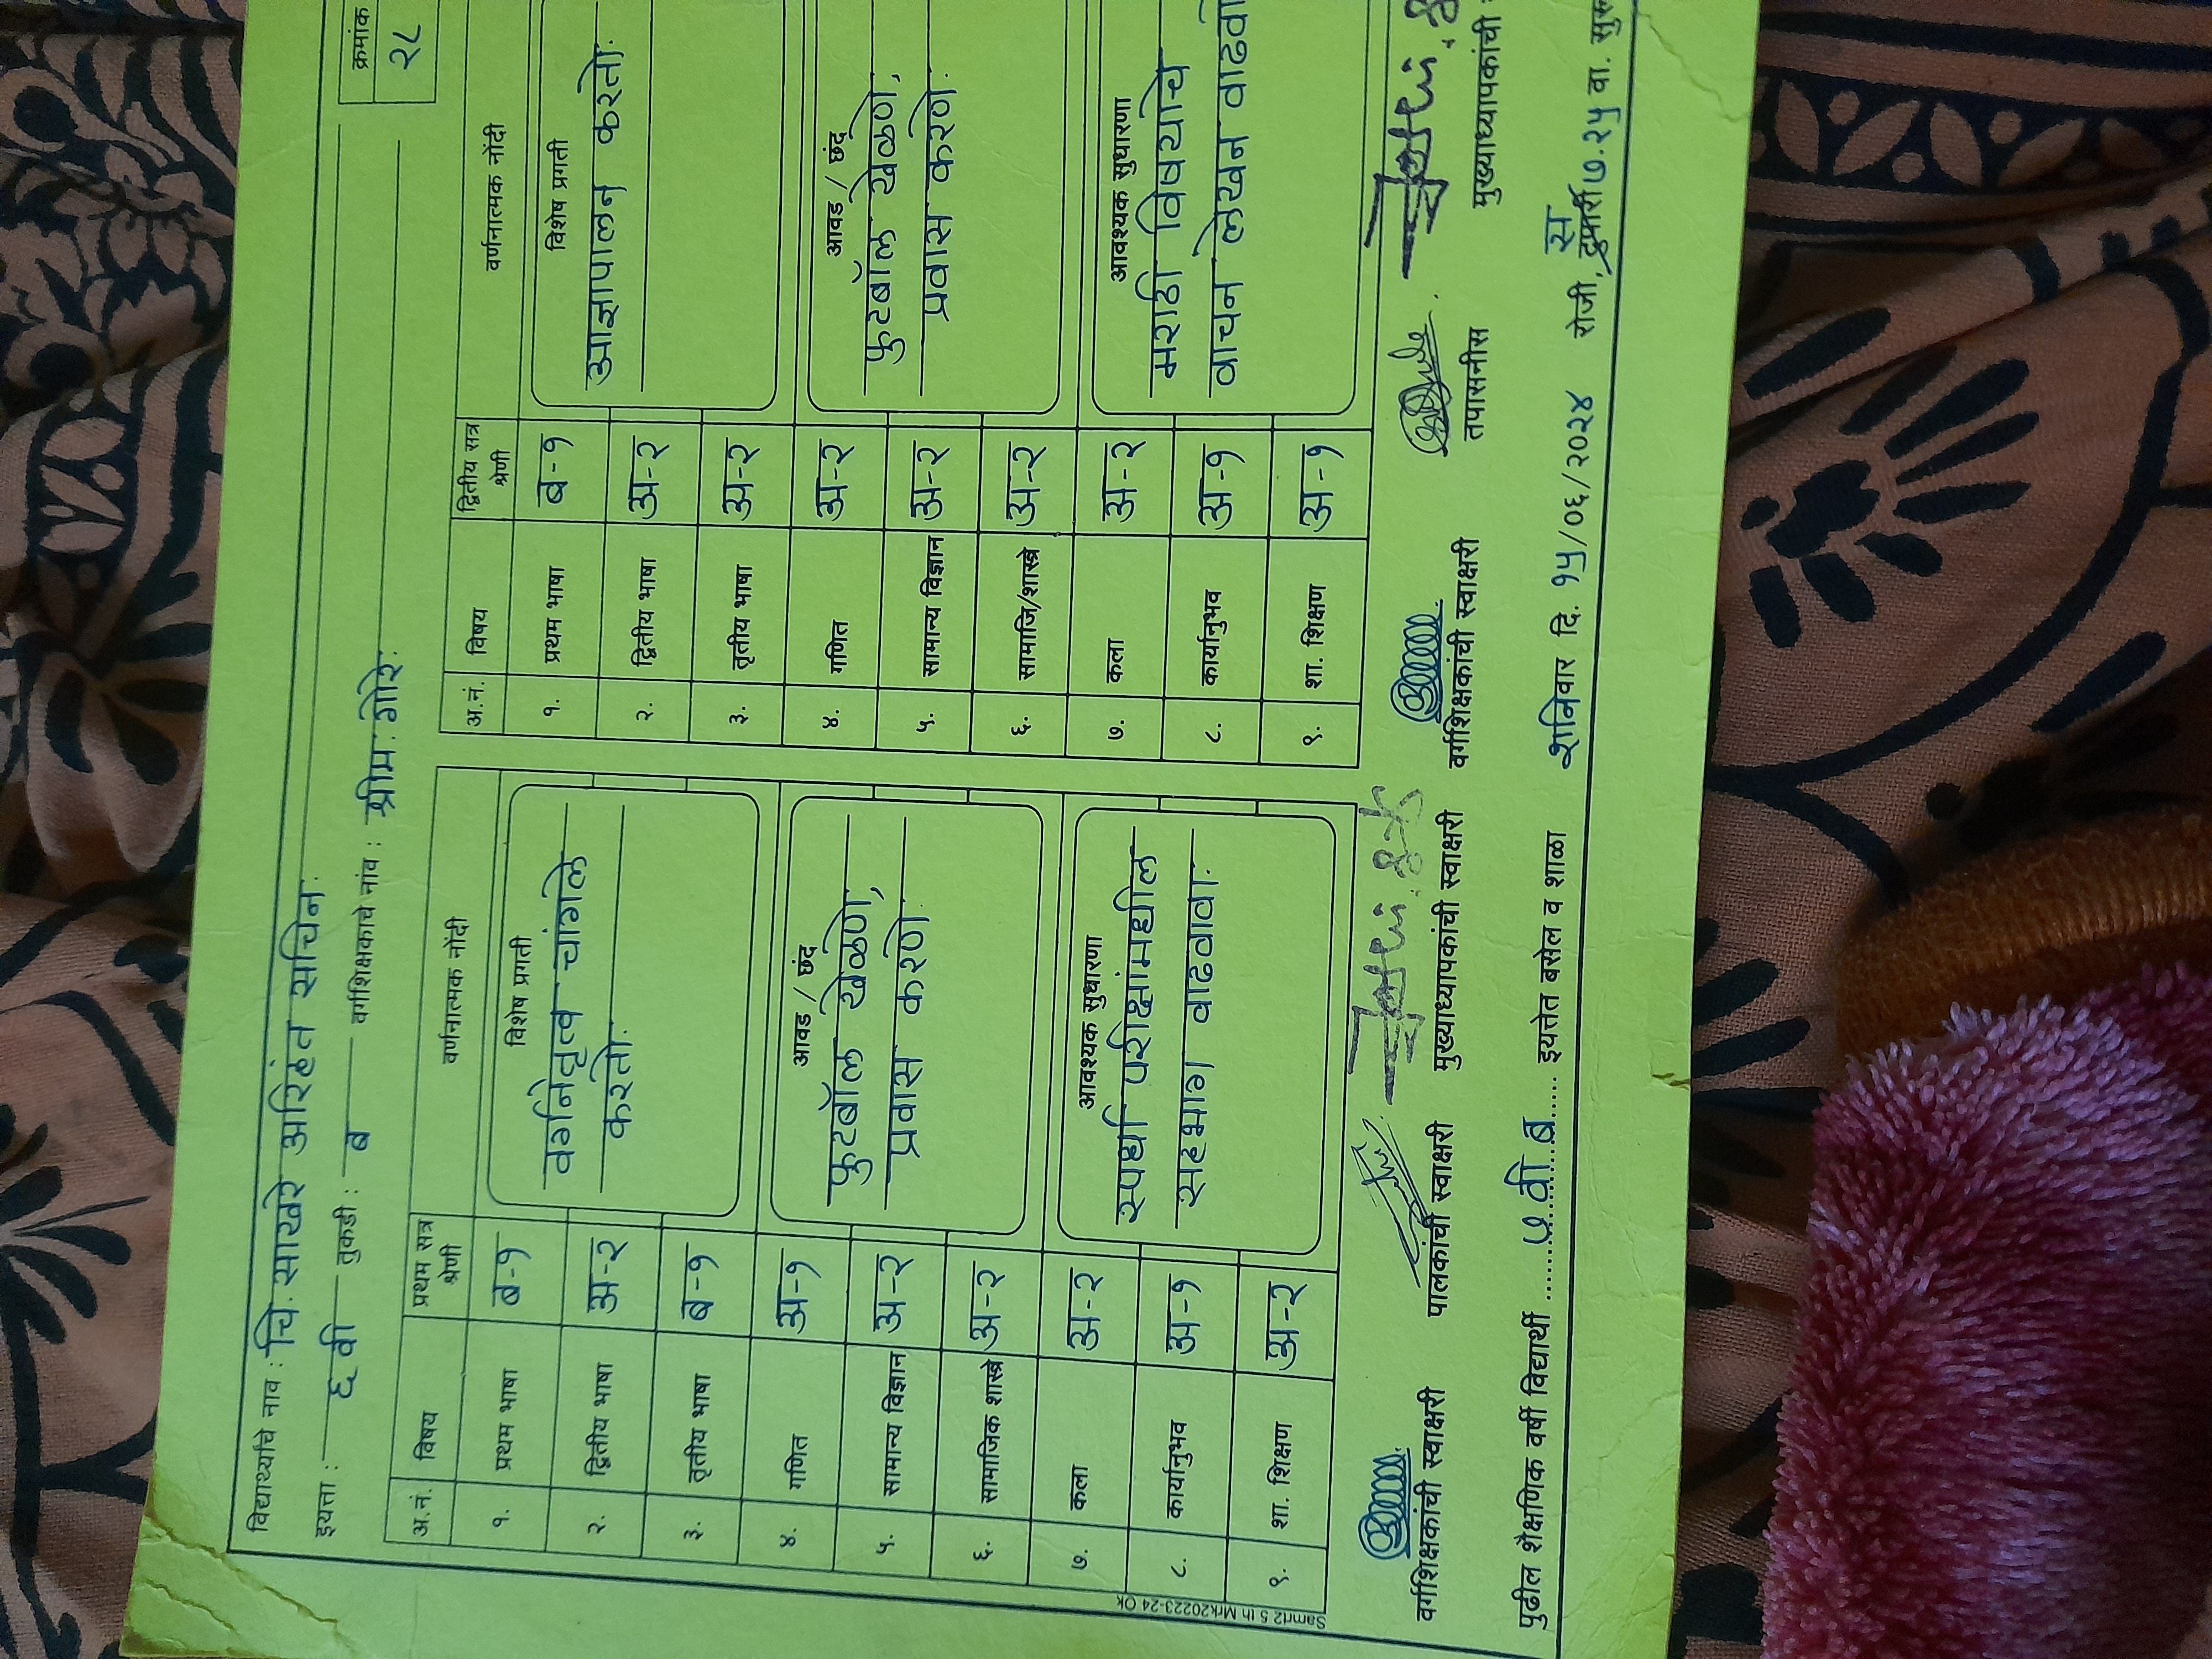 विद्यार्थ्याचे नाव : चि. साखरे अरिहंत सचिन.
क्रमांक
२८
इयत्ता : ६ वी तुकडी : ब वर्गशिक्षकाचे नांव : श्रीम. गोरे.
अ.नं. विषय प्रथम सत्र श्रेणी वर्णनात्मक नोंदी
१. प्रथम भाषा ब-१
२. द्वितीय भाषा अ-२
३. तृतीय भाषा ब-१
४. गणित अ-१
५. सामान्य विज्ञान अ-२
६. सामाजिक शास्त्रे अ-२
७. कला अ-२
८. कार्यानुभव अ-१
९. शा. शिक्षण अ-२
विशेष प्रगती
वर्गनेतृत्व चांगले
करतो.
आवड / छंद
फुटबॉल खेळणे,
प्रवास करणे.
आवश्यक सुधारणा
स्पर्धा परीक्षांमधील
सहभाग वाढवावा.
वर्गशिक्षकांची स्वाक्षरी पालकांची स्वाक्षरी मुख्याध्यापकांची स्वाक्षरी
अ.नं. विषय द्वितीय सत्र श्रेणी वर्णनात्मक नोंदी
१. प्रथम भाषा ब-१
२. द्वितीय भाषा अ-२
३. तृतीय भाषा अ-२
४. गणित अ-२
५. सामान्य विज्ञान अ-२
६. सामाजि/शास्त्रे अ-२
७. कला अ-२
८. कार्यानुभव अ-१
९. शा. शिक्षण अ-१
विशेष प्रगती
आज्ञापालन करतो.
आवड / छंद
फुटबॉल खेळणे,
प्रवास करणे.
आवश्यक सुधारणा
मराठी विषयाचे
वाचन लेखन
वर्गशिक्षकांची स्वाक्षरी तपासनीस मुख्याध्यापकांची
पुढील शैक्षणिक वर्षी विद्यार्थी ७ वी ब इयत्तेत बसेल व शाळा शनिवार दि. १५/०६/२०२४ रोजी, ७.२५ वा.
Samrt2 5 th Mrk20223-24 Ok